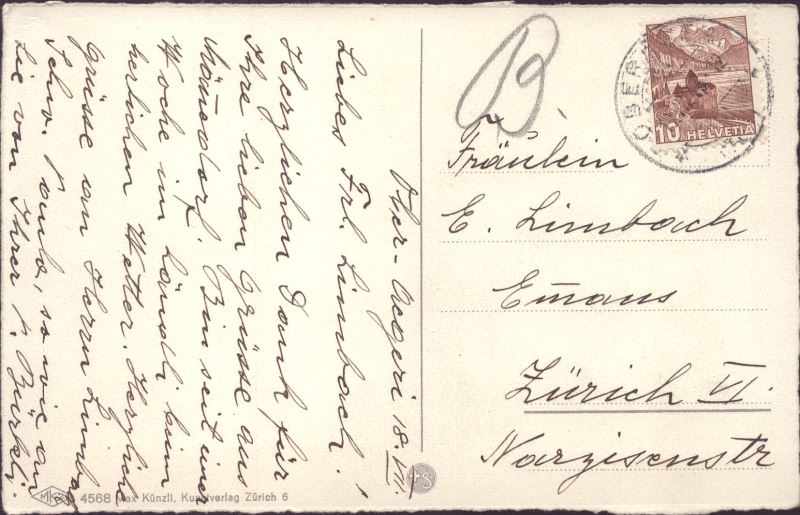 Ober-Aegeri 18. VII.
Liebes Frl. Limbach!
Herzlichen Dank für
Ihre lieben Grüsse aus
Männedorf. Bin seit einer
Woche im Ländli beim
herrlichen Wetter. Herzliche
Grüsse an Herrn Limbach
Schw. so wie an
Sie von Ihrer Bürkli.
B
Fräulein
E. Limbach
Emaus
Zürich VI.
Narzissenstr
OBER
10 HELVETIA
MKZ 4568 Max Künzli, Kunstverlag Zürich 6